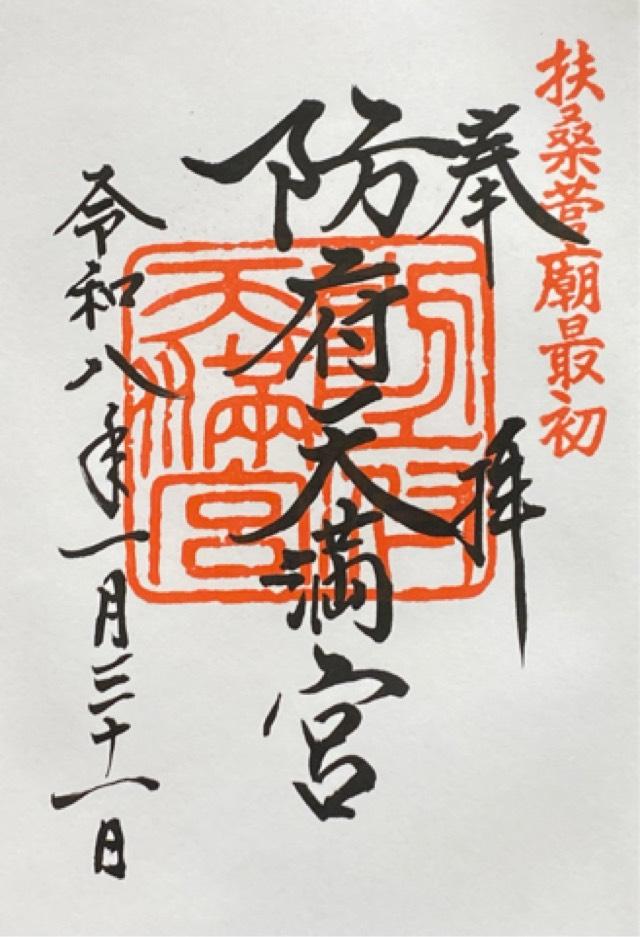 扶桑菅廟最初
奉拝
防府天満宮
防府
天満宮
令和八年一月三十一日